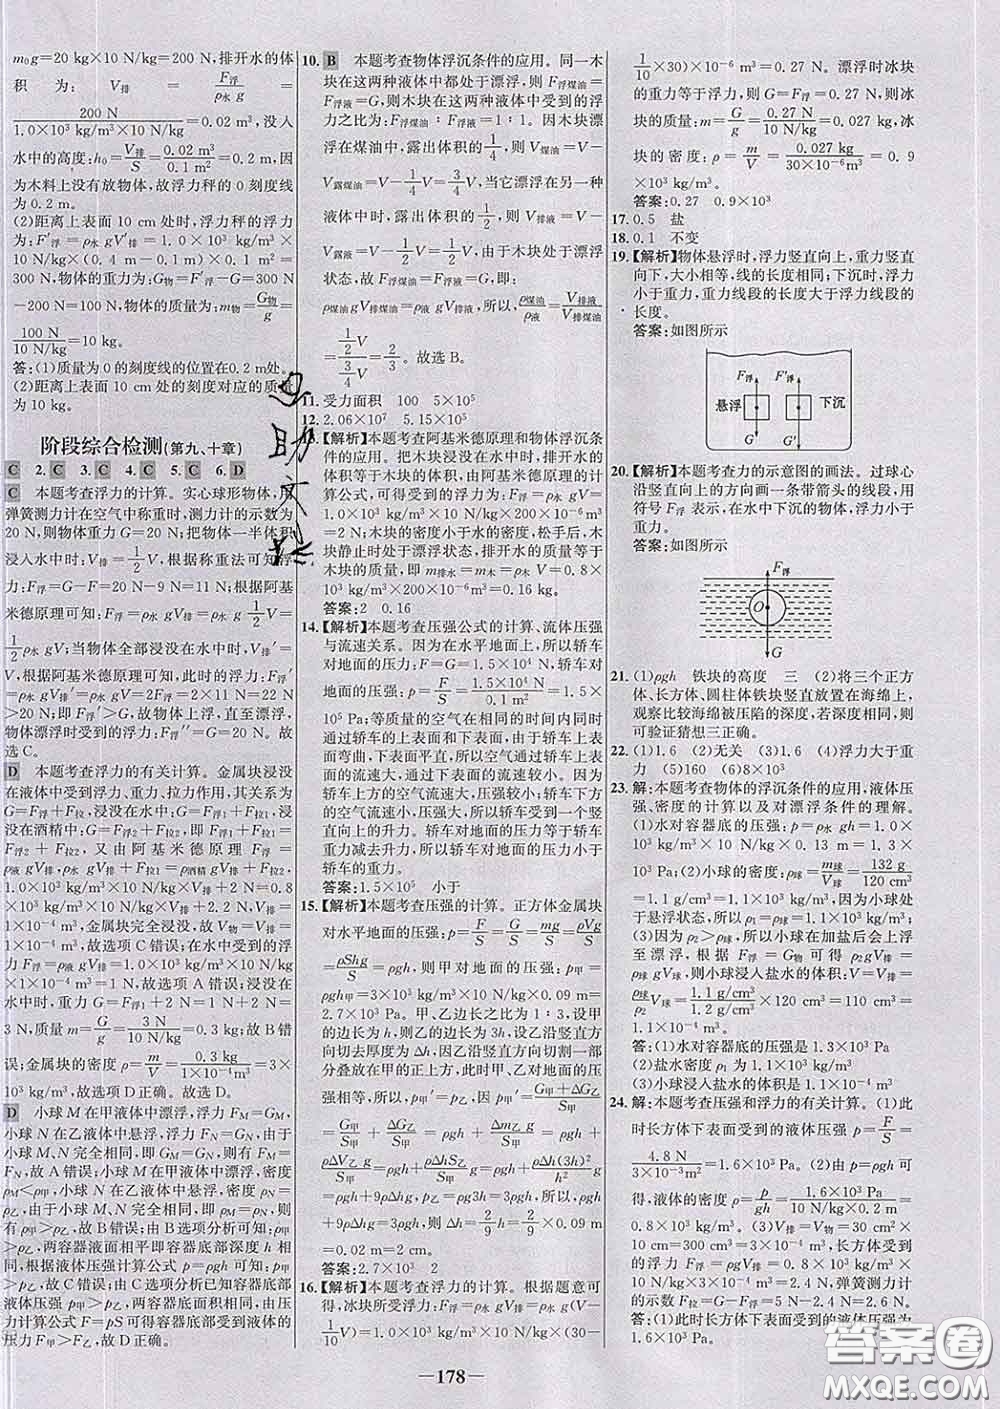 m₀g=20 kg×10 N/kg=200 N,排开水的体
积为:V排=F浮/ρ水 g=
200 N/1.0×10³ kg/m³×10 N/kg=0.02 m³,没入
水中的高度:h₀=V排/S=0.02 m³/0.1 m²=0.2 m,因
为木料上没有放物体,故浮力秤的0刻度线
为0.2 m。
(2)距离上表面10 cm处时,浮力秤的浮力
为:F′浮=ρ水 gV′排=1.0×10³ kg/m³×
10 N/kg×(0.4 m-0.1 m)×0.1 m²=
300 N,物体的重力为:G物=F′浮-G=300 N
-200 N=100 N,物体的质量为:m物=G物/g=
100 N/10 N/kg=10 kg。
答:(1)质量为0的刻度线的位置在0.2 m处。
(2)距离上表面10 cm处的刻度对应的质量
为10 kg。
阶段综合检测(第九、十章)
C 2.C 3.C 4.C 5.C 6.D
C 本题考查浮力的计算。实心球形物体,用
弹簧测力计在空气中称重时,测力计的示数为
20 N,则物体重力G=20 N;把物体一半体积
浸入水中时:V排=1/2V,根据称重法可知浮
力:F浮=G-F=20 N-9 N=11 N;根据阿基
米德原理可知:F浮=ρ水 gV排=ρ水 g 1/2V=
1/2ρ水 gV;当物体全部浸没在水中时,V排′=
V,根据阿基米德原理可知,此时浮力:F浮′=
ρ水 gV排′=ρ水 gV=2F浮=2×11 N=22 N
>20 N;即F浮′>G,故物体上浮,直至漂浮,
物体漂浮时受到的浮力:F浮″=G=20 N。故
选C。
D 本题考查浮力的有关计算。金属块浸没
在液体中受到浮力、重力、拉力作用,其关系为
G=F浮+F拉,浸没在水中:G=F浮1+F拉1,浸
没在酒精中:G=F浮2+F拉2,即F浮1+F拉1=
F浮2+F拉2,又由阿基米德原理F浮=
ρ液 gV排得:ρ水 gV排+F拉1=ρ酒精 gV排+F拉2,
1.0×10³ kg/m³×10 N/kg×V排+2 N=0.8×
10³ kg/m³×10 N/kg×V排+2.2 N,V排=
1×10⁻⁴ m³,金属块完全浸没,故V物=V排=
1×10⁻⁴ m³,故选项C错误;在水中受到的浮
力:F浮=ρ液 gV排=1.0×10³ kg/m³×
10 N/kg×1×10⁻⁴ m³=1 N,故选项A错误;浸没在
水中时,重力G=F浮+F拉=1 N+2 N=
3 N,质量m=G/g=3 N/10 N/kg=0.3 kg;故B错
误;金属块的密度ρ=m/V=0.3 kg/1×10⁻⁴ m³=3×
10³ kg/m³,故选项D正确。故选D。
D 小球M在甲液体中漂浮,浮力F_M=G_M,
小球N在乙液体中悬浮,浮力F_N=G_N,由于
小球M、N完全相同,即G_M=G_N,则有F_M=
F_N,故A错误;小球M在甲液体中漂浮,密度
ρ_M<ρ甲,小球N在乙液体中悬浮,密度ρ_N=
ρ乙,由于小球M、N完全相同,即ρ_M=ρ_N,则
有ρ甲>ρ乙,故B错误;由B选项分析可知:ρ甲
>ρ乙,两容器液面相平即容器底部深度h相
同,根据液体压强计算公式p=ρgh可得,p甲>
p乙,故C错误;由C选项分析已知容器底部
液体压强p甲>p乙,两容器底面积相同,由压
力计算公式F=pS可得容器底部受到液体的
压力F甲>F乙,故D正确。
10. B 本题考查物体浮沉条件的应用。同一木
块在这两种液体中都处于漂浮,则F浮煤油=
F浮液=G,则木块在这两种液体中受到的浮
力之比为:F浮煤油:F浮液=1:1。因木块漂
浮在煤油中,露出体积的1/4,则V排煤油=V-
V露煤油=V-1/4V=3/4V,当它漂浮在另一种
液体中时,露出体积的1/2,则V排液=V-
V露液=V-1/2V=1/2V;由于木块处于漂浮
状态,故F浮煤油=F浮液=G,即:
ρ煤油 gV排煤油=ρ液 gV排液,所以,ρ煤油/ρ液=V排液/V排煤油
=1/2V/3/4V=2/3。故选B。
11. 受力面积 100 5×10⁵
12. 2.06×10⁷ 5.15×10⁵
13.【解析】本题考查阿基米德原理和物体浮沉条
件的应用。把木块浸没在水中时,排开水的
体积等于木块的体积,由阿基米德原理的计
算公式,可得受到的浮力F浮=ρ水 gV=
1.0×10³ kg/m³×10 N/kg×200×10⁻⁶ m³
=2 N;木块的密度小于水的密度,松手后,木
块静止时处于漂浮状态,排开水的质量等于
木块的质量,即:m排水=m木=ρ木V=0.8×
10³ kg/m³×200×10⁻⁶ m³=0.16 kg。
答案:2 0.16
14.【解析】本题考查压强公式的计算、流体压强
与流速关系。因为在水平地面上,所以轿车
对地面的压力:F=G=1.5×10⁴ N,轿车对
地面的压强:p=F/S=1.5×10⁴ N/0.1 m²=1.5×
10⁵ Pa;等质量的空气在相同的时间内同时
通过轿车的上表面和下表面,由于轿车上表
面弯曲,下表面平直,所以,轿车上表面空气
的流速大,压强小;下表面空气流速小,压强大。
空气流速小,压强大。轿车受到一个竖
直向上的升力。轿车对地面的压力等于轿车
重力减去升力。所以轿车对地面的压力小于
轿车的重力。
答案:1.5×10⁵ 小于
15.【解析】本题考查压强的计算。正方体金属块
对水平地面的压强:p=F/S=G/S=mg/S=ρVg/S=
ρShg/S=ρgh,则甲对地面的压强:p甲=
ρgh甲=3×10³ kg/m³×10 N/kg×0.09 m=
2.7×10³ Pa。甲、乙边长之比为1:3,设甲
的边长为h,则乙的边长为3h,设乙沿竖直方
向切去厚度为Δh,因乙沿竖直方向切去一部
分叠放在甲上时,此时甲、乙对地面的压
强相等,即p甲′=p乙,又因为p甲′=G甲+ΔG乙/S甲
=G甲/S甲+ΔG乙/S甲=ρgh+ΔG乙/S甲=ρgh+
ρΔV乙g/S甲=ρgh+ρΔhS乙g/S甲=ρgh+ρΔh(3h)²g/h²=
ρgh+9ρΔhg,p乙=ρg3h=3ρgh,所以,
ρgh+9ρΔhg=3ρgh,Δh=2/9h=2/9×0.09 m
=0.02 m=2 cm。
答案:2.7×10³ 2
16.【解析】本题考查浮力的计算。根据题意可
得,冰块所受浮力:F浮=ρ水 gV排=ρ水 g(V-
1/10V)=1.0×10³ kg/m³×10 N/kg×(30-
1/10×30)×10⁻⁶ m³=0.27 N。漂浮时冰块
的重力等于浮力,则G=F浮=0.27 N,则冰
块的质量:m=G/g=0.27 N/10 N/kg=0.027 kg,冰
块的密度:ρ=m/V=0.027 kg/30×10⁻⁶ m³=0.9
×10³ kg/m³。
答案:0.27 0.9×10³
17. 0.5 盐
18. 0.1 不变
19.【解析】物体悬浮时,浮力竖直向上,重力竖直
向下,大小相等,线的长度相同;下沉时,浮力
小于重力,重力线段的长度大于浮力线段的
长度。
答案:如图所示
F浮 F′浮
悬浮 下沉
G G′
20.【解析】本题考查力的示意图的画法。过球心
沿竖直向上的方向画一条带箭头的线段,用
符号F浮表示,在水中下沉的物体,浮力小于
重力。
答案:如图所示
F浮
O
G
21. (1)ρgh 铁块的高度 三 (2)将三个正方
体、长方体、圆柱体铁块竖直放置在海绵上,
观察比较海绵被压陷的深度,若深度相同则
可验证猜想三正确。
22. (1)1.6 (2)无关 (3)1.6 (4)浮力大于重
力 (5)160 (6)8×10³
23. 解:本题考查物体的浮沉条件的应用,液体压
强、密度的计算以及对漂浮条件的理解。
(1)水对容器底的压强:p=ρ水 gh=1.0×
10³ kg/m³×10 N/kg×0.13 m=1.3×10³ Pa
(2)小球的密度:ρ球=m球/V球=132 g/120 cm³=
1.1 g/cm³=1.1×10³ kg/m³;由于小球在盐水中
处悬浮状态,所以,ρ1=ρ球=1.1×10³ kg/m³
(3)因为ρ2>ρ球,所以小球在加盐后会上浮
至漂浮,根据F浮=G物可得ρ2gV球=
ρ球 gV球,则小球浸入盐水的体积:V排=
ρ球/ρ2V球=1.1 g/cm³/1.2 g/cm³×120 cm³=110 cm³=
1.1×10⁻⁴ m³。
答:(1)水对容器底的压强是1.3×10³ Pa
(2)盐水密度是1.1×10³ kg/m³
(3)小球浸入盐水的体积是1.1×10⁻⁴ m³
24. 解:本题考查压强和浮力的有关计算。(1)此
时长方体下表面受到的液体压强p=F/S=
4.8 N/3×10⁻³ m²=1.6×10³ Pa。(2)由p=ρgh可
得,液体的密度ρ=p/gh=1.6×10³ Pa/10 N/kg×0.2 m=
0.8×10³ kg/m³。(3)V排=V物=30 cm²
×20 cm=600 cm³=6×10⁻⁴ m³,长方体受到
的浮力F浮=ρ液 gV排=0.8×10³ kg/m³×
10 N/kg×6×10⁻⁴ m³=4.8 N,弹簧测力计
的示数F拉=G-F浮=5 N-4.8 N=0.2 N。
答:(1)此时长方体下表面受到的液体压强为
1.6×10³ Pa。
—178—
答案圈
MXQE.COM